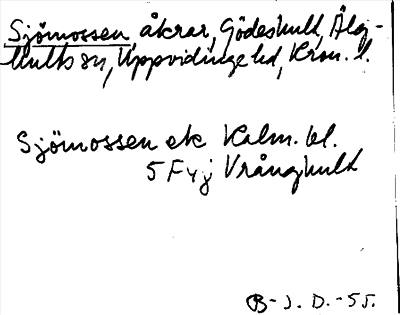 Sjömossen, åkrar, Gödeshult, Älg-
hults sn, Uppvidinge hd, Kron. l.
Sjömossen ek Kalm. bl.
5 F 4 j Vrånghult
B-J. D.-55.